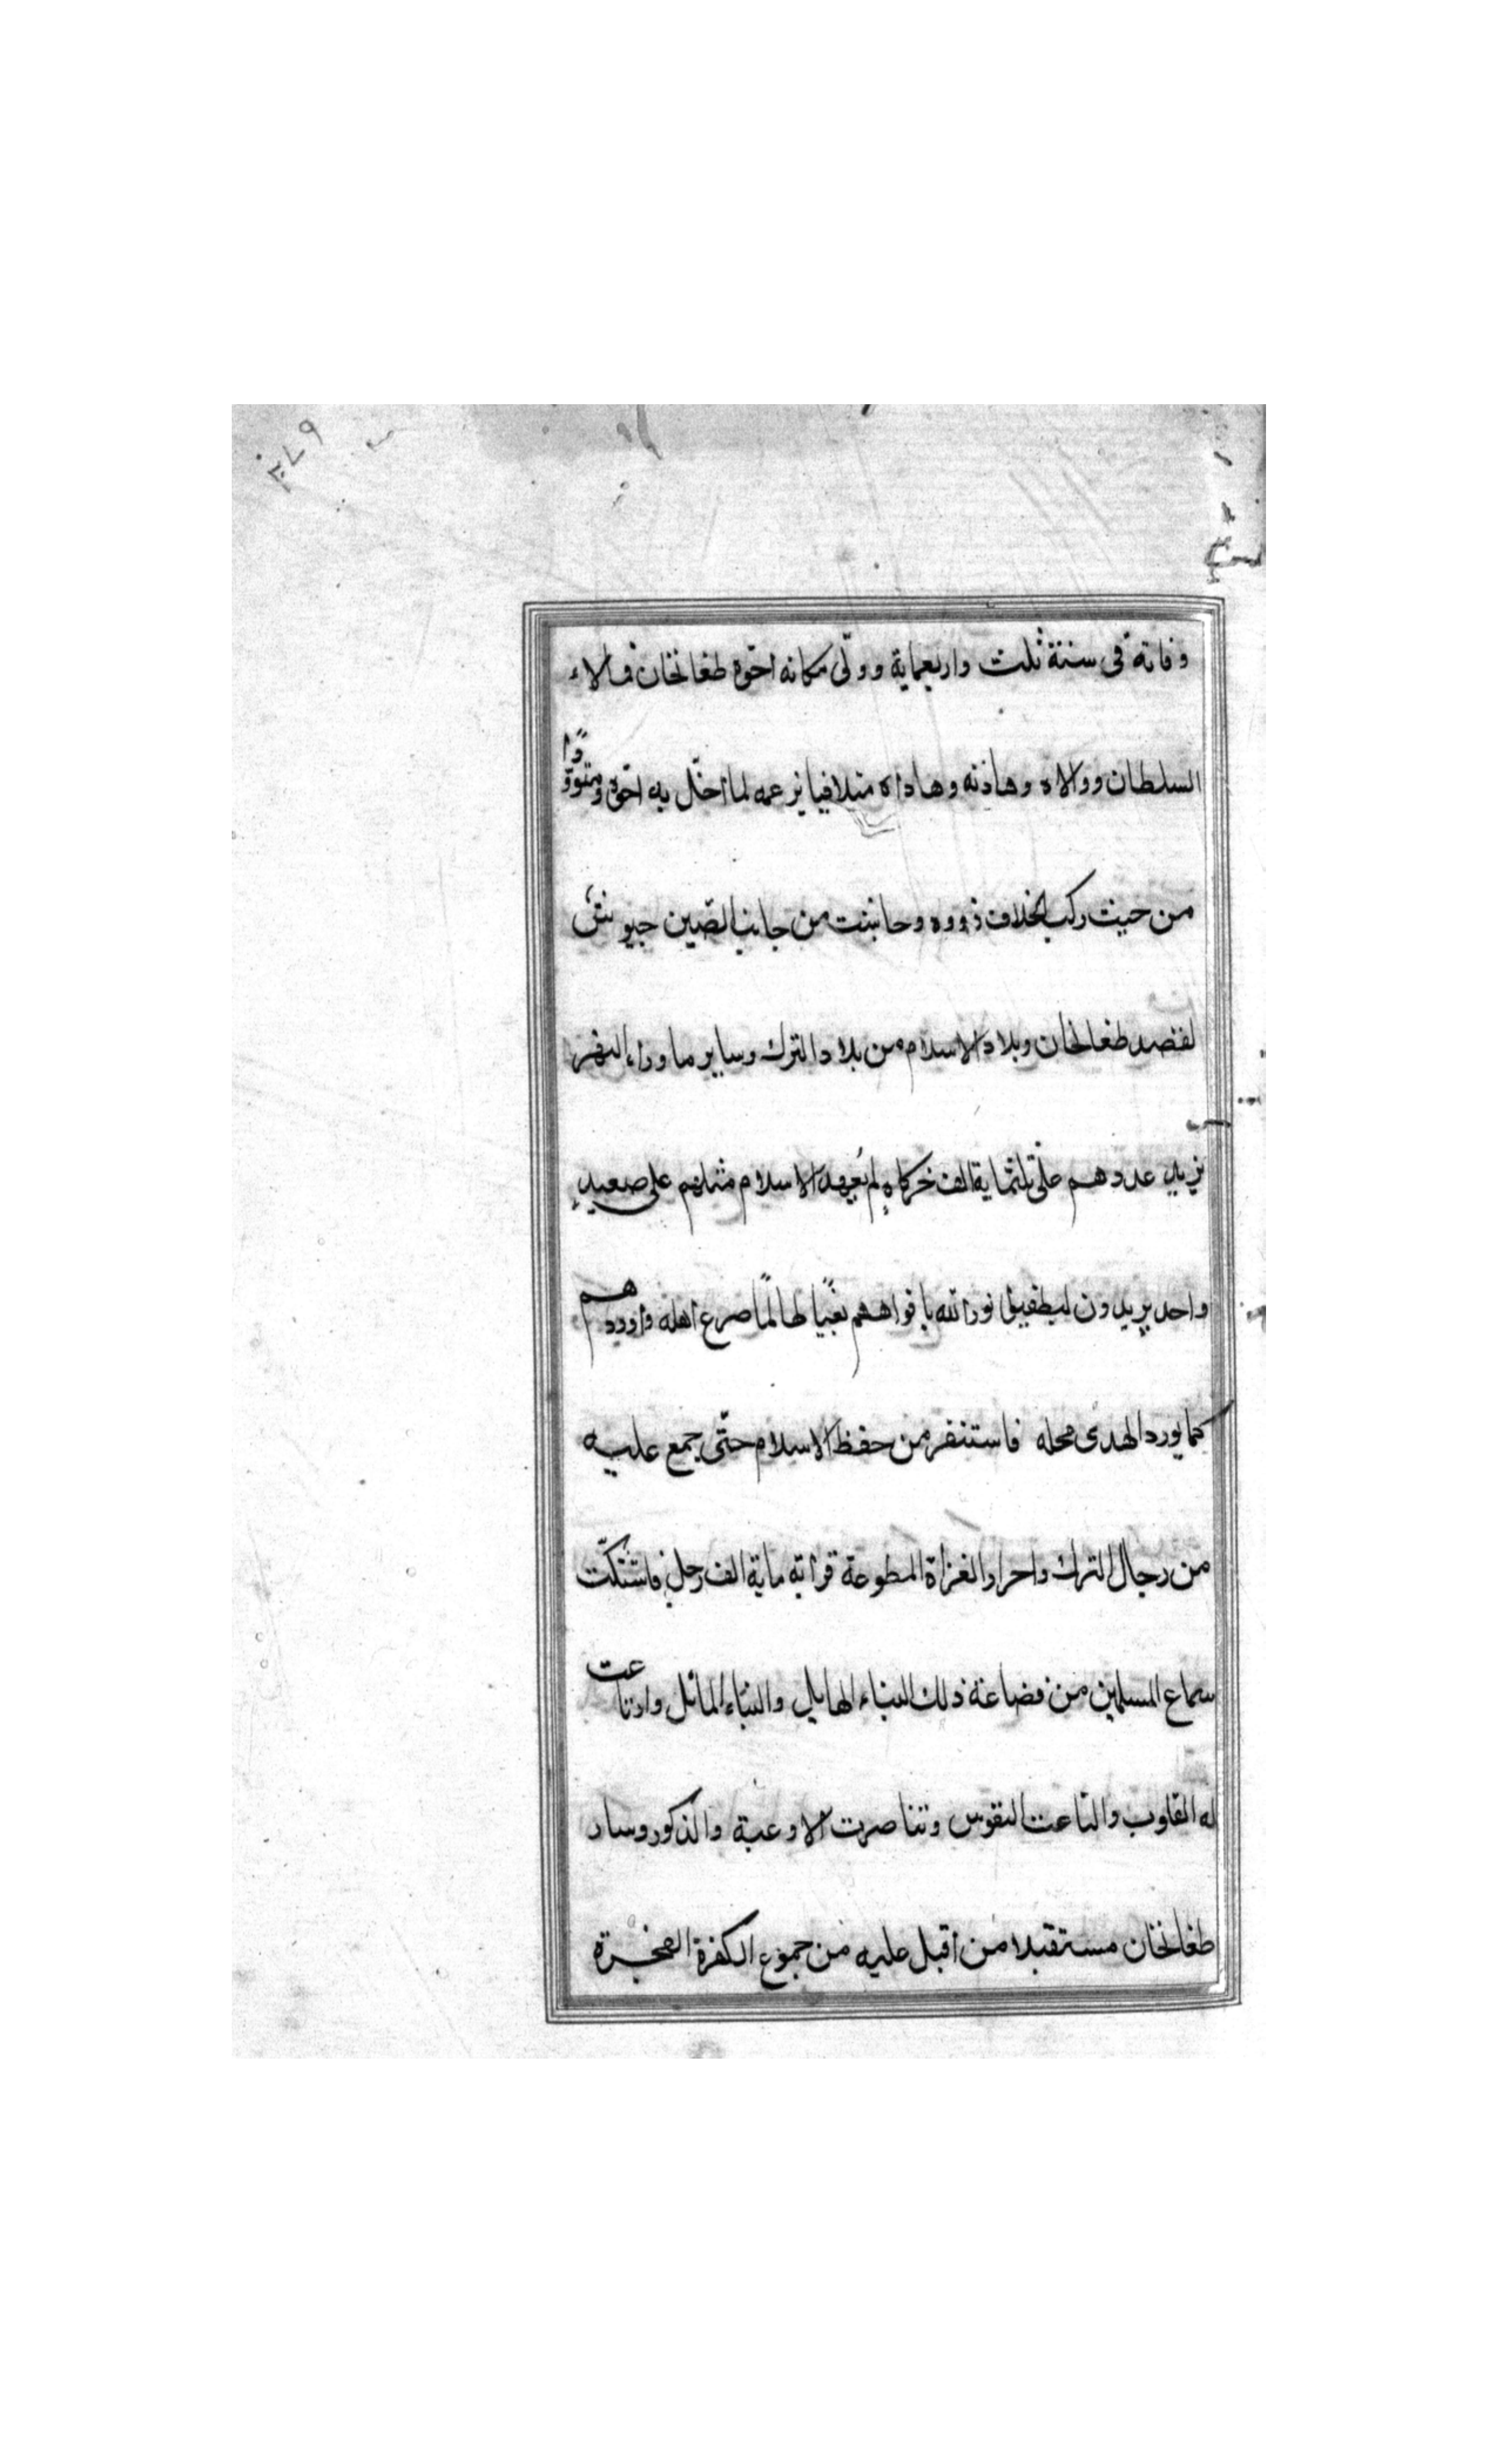 وفاته فى سنة ثلث واربعماية وولّى مكانه اخوه طغانخان فمالاء
السلطان ووالاه وهاذنه وهاداه متلافيا بزعمه لما اخلّ به اخوه ومتوقوًا
من حيث ركب بخلاف ذووه وحانبت من جانب الصّين جيوش
لقصد طغانخان وبلاد الاسلام من بلاد الترك وساير ماوراء النهر
يزيد عددهم على ثلثماية الف خركاه لم يُعهد الاسلام مثلهم على صعيدٍ
واحد يريدون ليطفيوا نور الله بافواههم بغيًا طالمًا صرع اهله واوردهم
كما يورد الهدى محله فاستنفر من حفظ الاسلام حتّى جمع عليه
من رجال الترك واحرار الغزاة المطوعة قرابه ماية الف رجل فاشتكّت
سماع المسلمين من فضاعة ذلك النباء الهايل والبناء المائل وارتاعت
له القلوب والتاعت النفوس وتناصرت الاوعية والذكور وسار
طغانخان مستقبلا من اقبل عليه من جموع الكفرة الفجرة